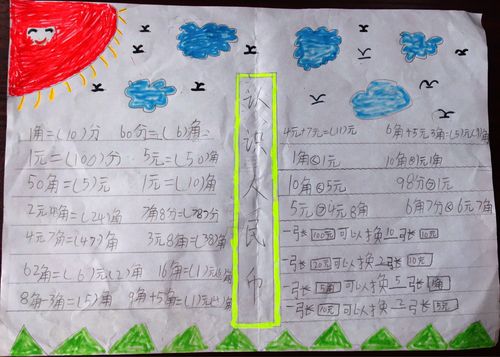 认识人民币
1角=(10)分 60分=(6)角
1元=(100)分 5元=(50)角
50角=(5)元 1元=(10)角
2元4角=(24)角 7角8分=(78)分
4元7角=(47)角 3元8角=(38)角
62角=(6)元(2)角 16角=(1)元(6)角
8角-3角=(5)角 9角+5角=(1)元角
4元+7元=(11)元 6角+5元3角=(5)元(9)角
1角<1元 10角 1角
10角<5元 98分 1元
5元>4元8角 6角7分<6元7角
一张100元可以换10张10元
一张20元可以换2张10元
一张5角可以换5张1角
一张10元可以换2张5元